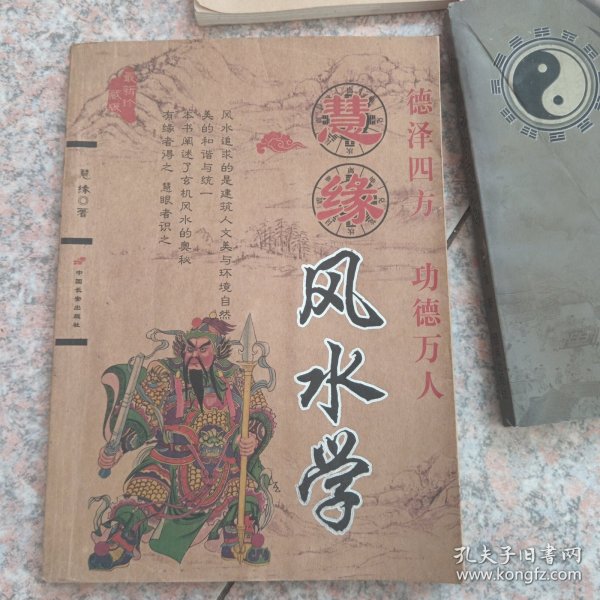 德泽四方 功德万人
慧缘
风水学
风水追求的是建筑人文美与环境自然
美的和谐与统一
本书阐述了玄机风水的奥秘
有缘者得之 慧眼者识之
最新珍
藏版
慧缘◎著
中国长安出版社
孔夫子旧书网
www.kongfz.com